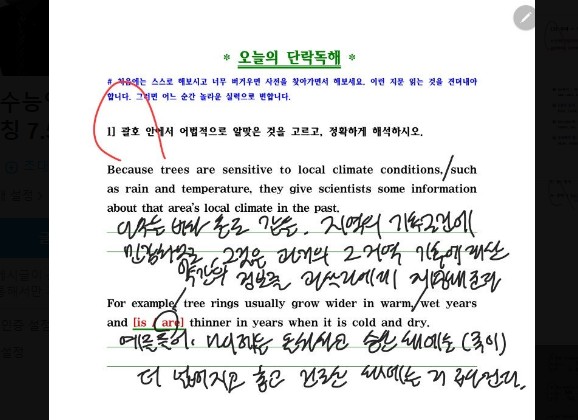 * 오늘의 단락독해 *
# 처음에는 스스로 해보시고 너무 버거우면 사전을 찾아가면서 해보세요. 이런 지문 읽는 것을 견뎌내야
합니다. 그러면 어느 순간 놀라운 실력으로 변합니다.
1] 괄호 안에서 어법적으로 알맞은 것을 고르고, 정확하게 해석하시오.
Because trees are sensitive to local climate conditions, such
as rain and temperature, they give scientists some information
about that area's local climate in the past.
나무는 비나 온도 같은 지역의 기후조건에
민감하므로, 그것은 과거의 그 지역 기후에 대한
약간의 정보를 과학자에게 제공해준다
For example, tree rings usually grow wider in warm, wet years
and [is / are] thinner in years when it is cold and dry.
예를들어, 나이테는 온화하고 습한 해에는 (폭이)
더 넓어지고 춥고 건조한 해에는